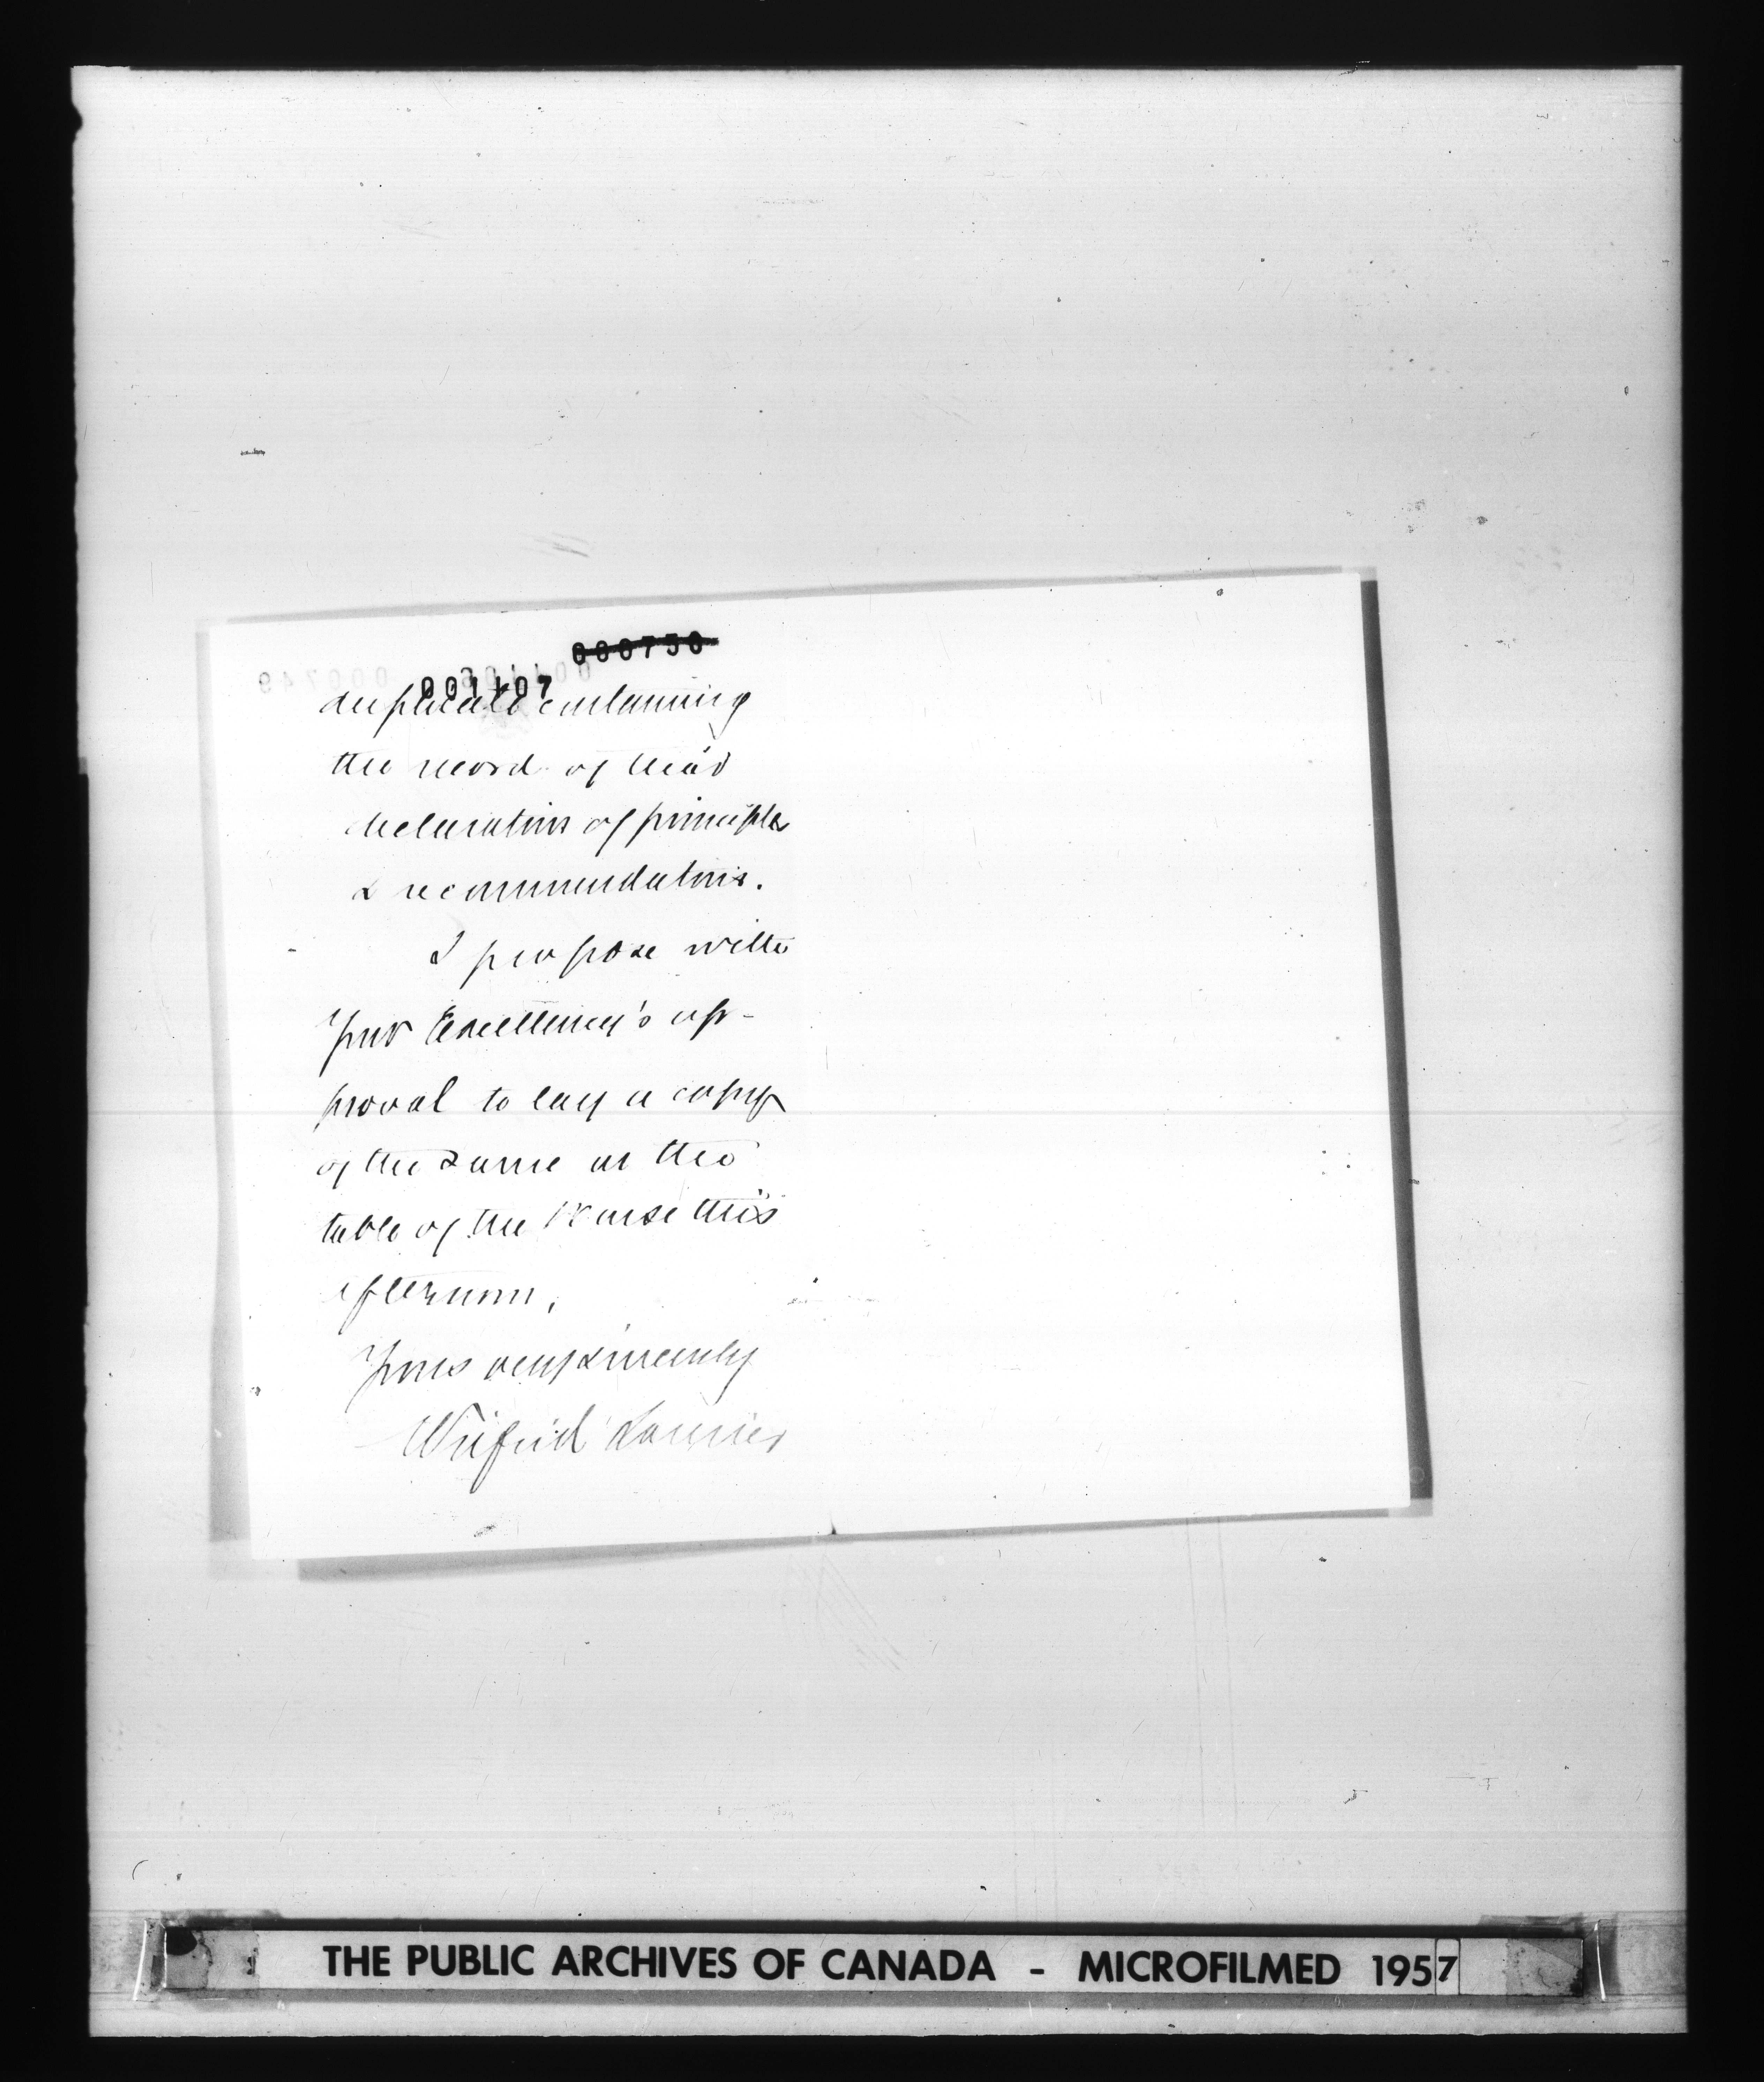 000750
001107
duplicate containing
the record of their
declaration of principles
& recommendations.
I propose with
Your Excellency's ap-
proval to lay a copy
of the same on the
table of the House this
afternoon.
Yours very sincerely
Wilfrid Laurier
THE PUBLIC ARCHIVES OF CANADA - MICROFILMED 1957